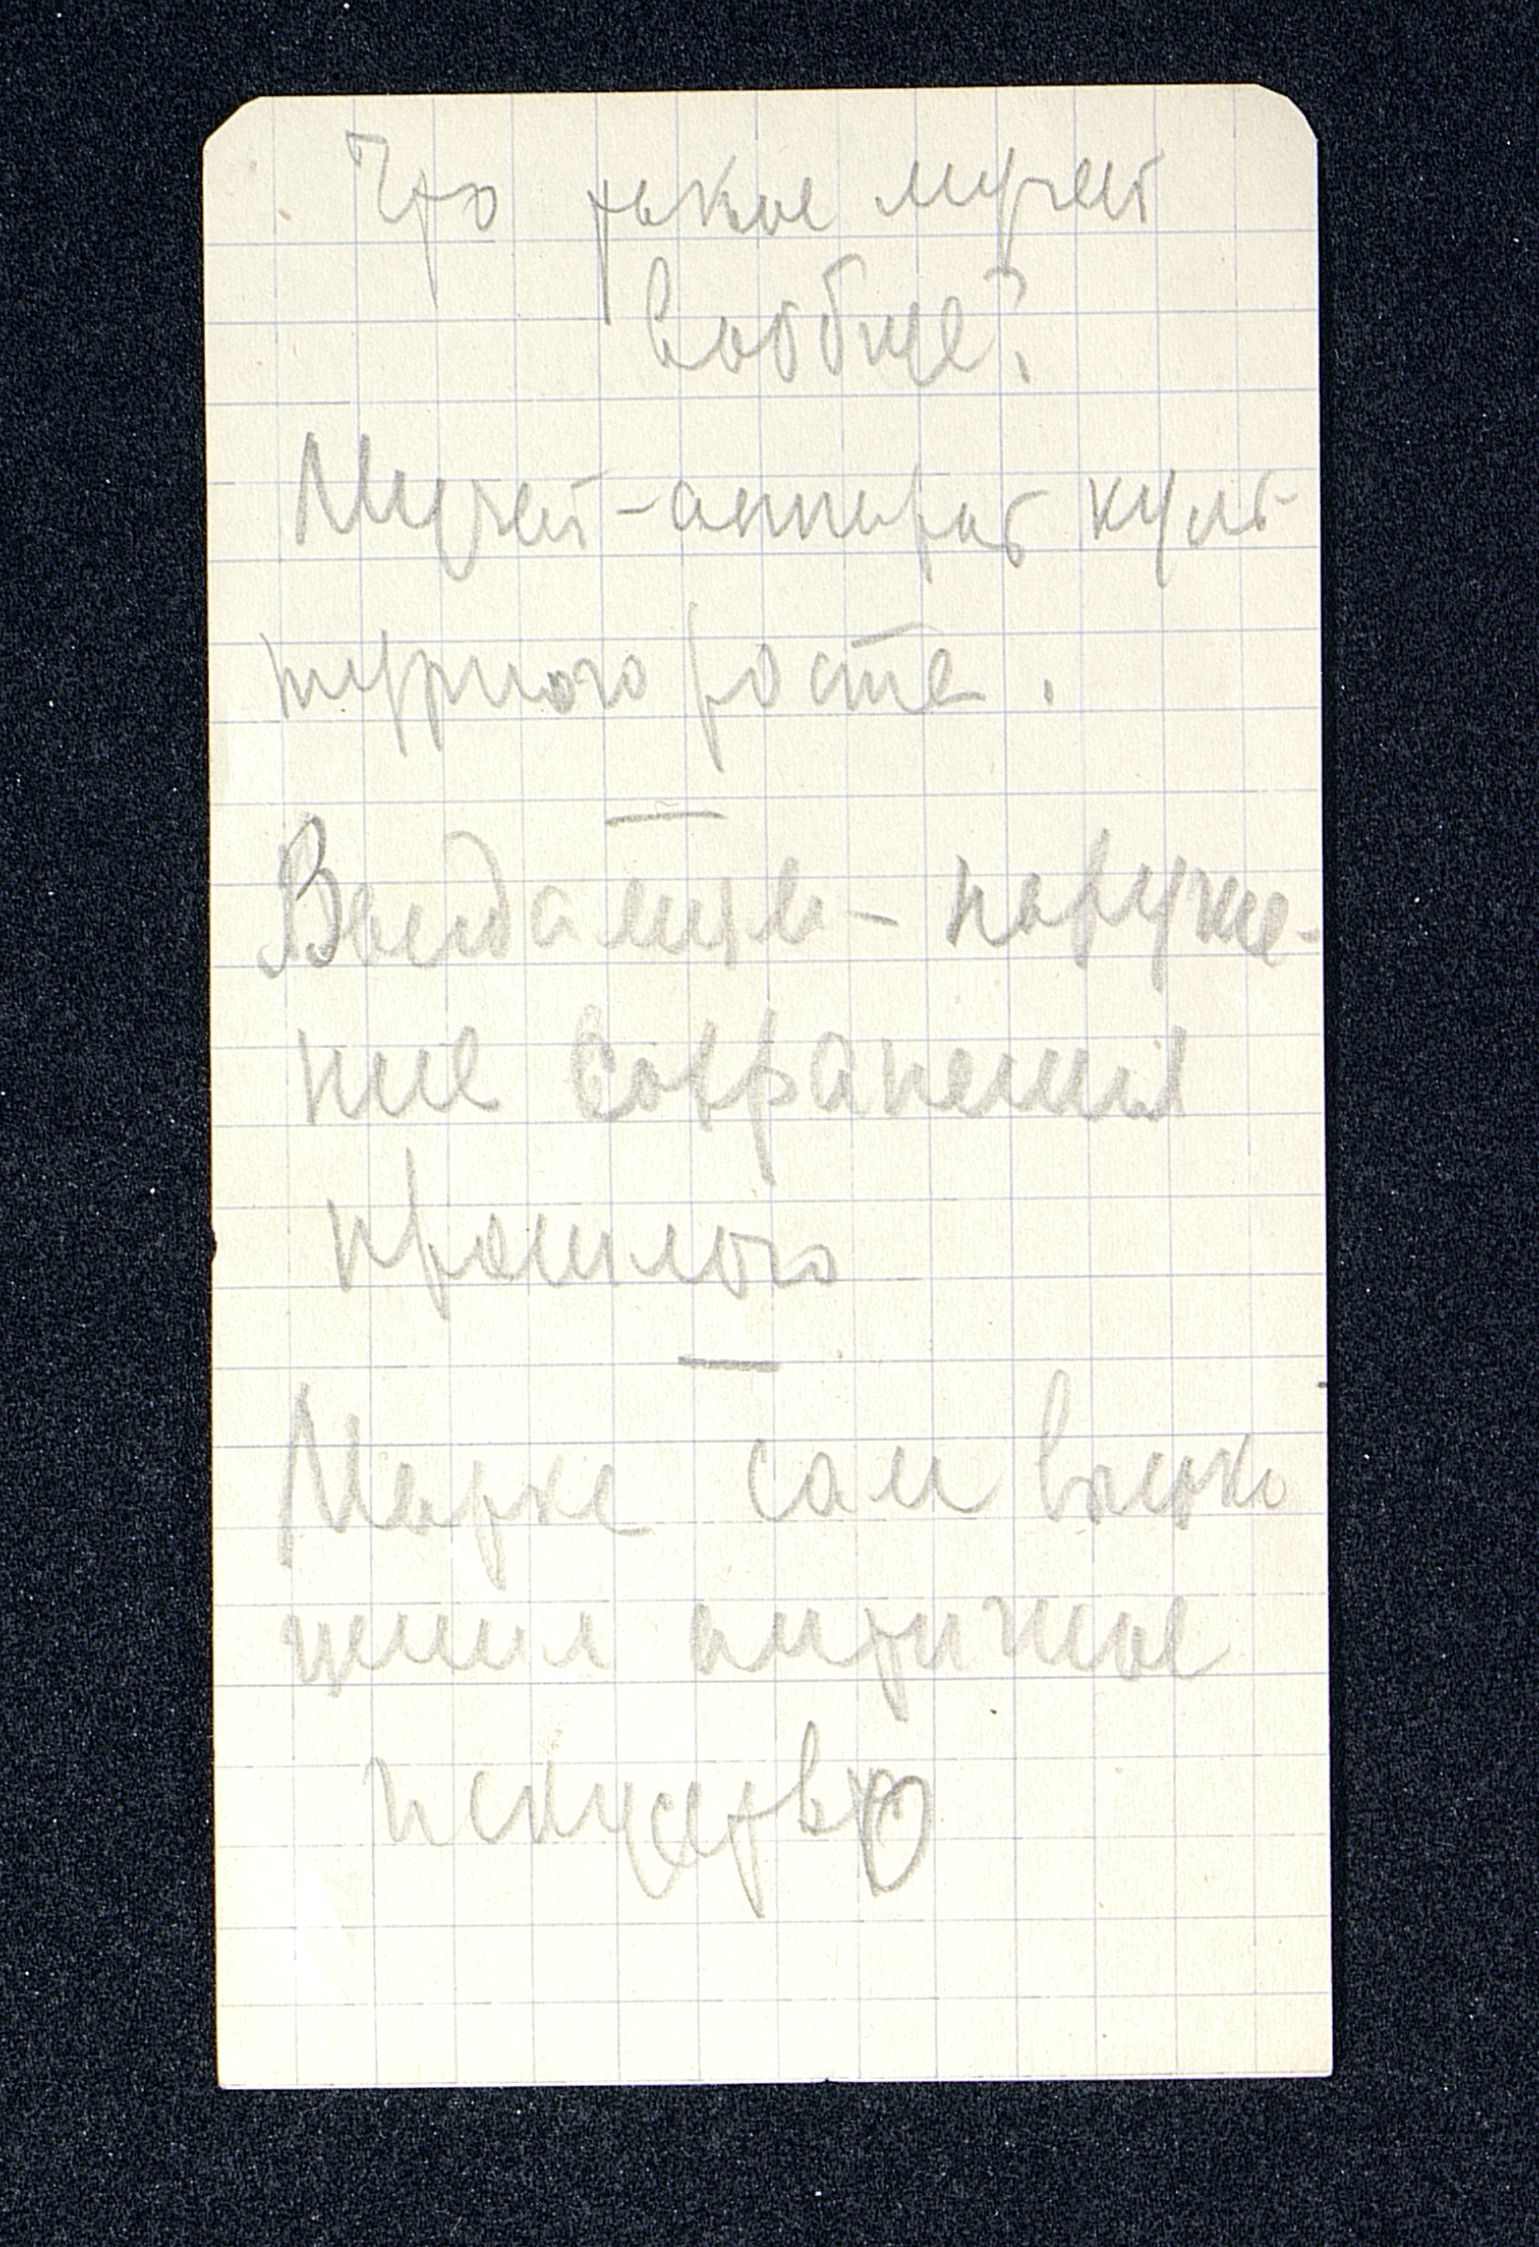 Что такое музей
вообще?
Музей - аппарат куль-
турного роста.
Вандализм - наруше-
ние сохранения
прошлого
Маркс сам высоко
ценил античное
искусство